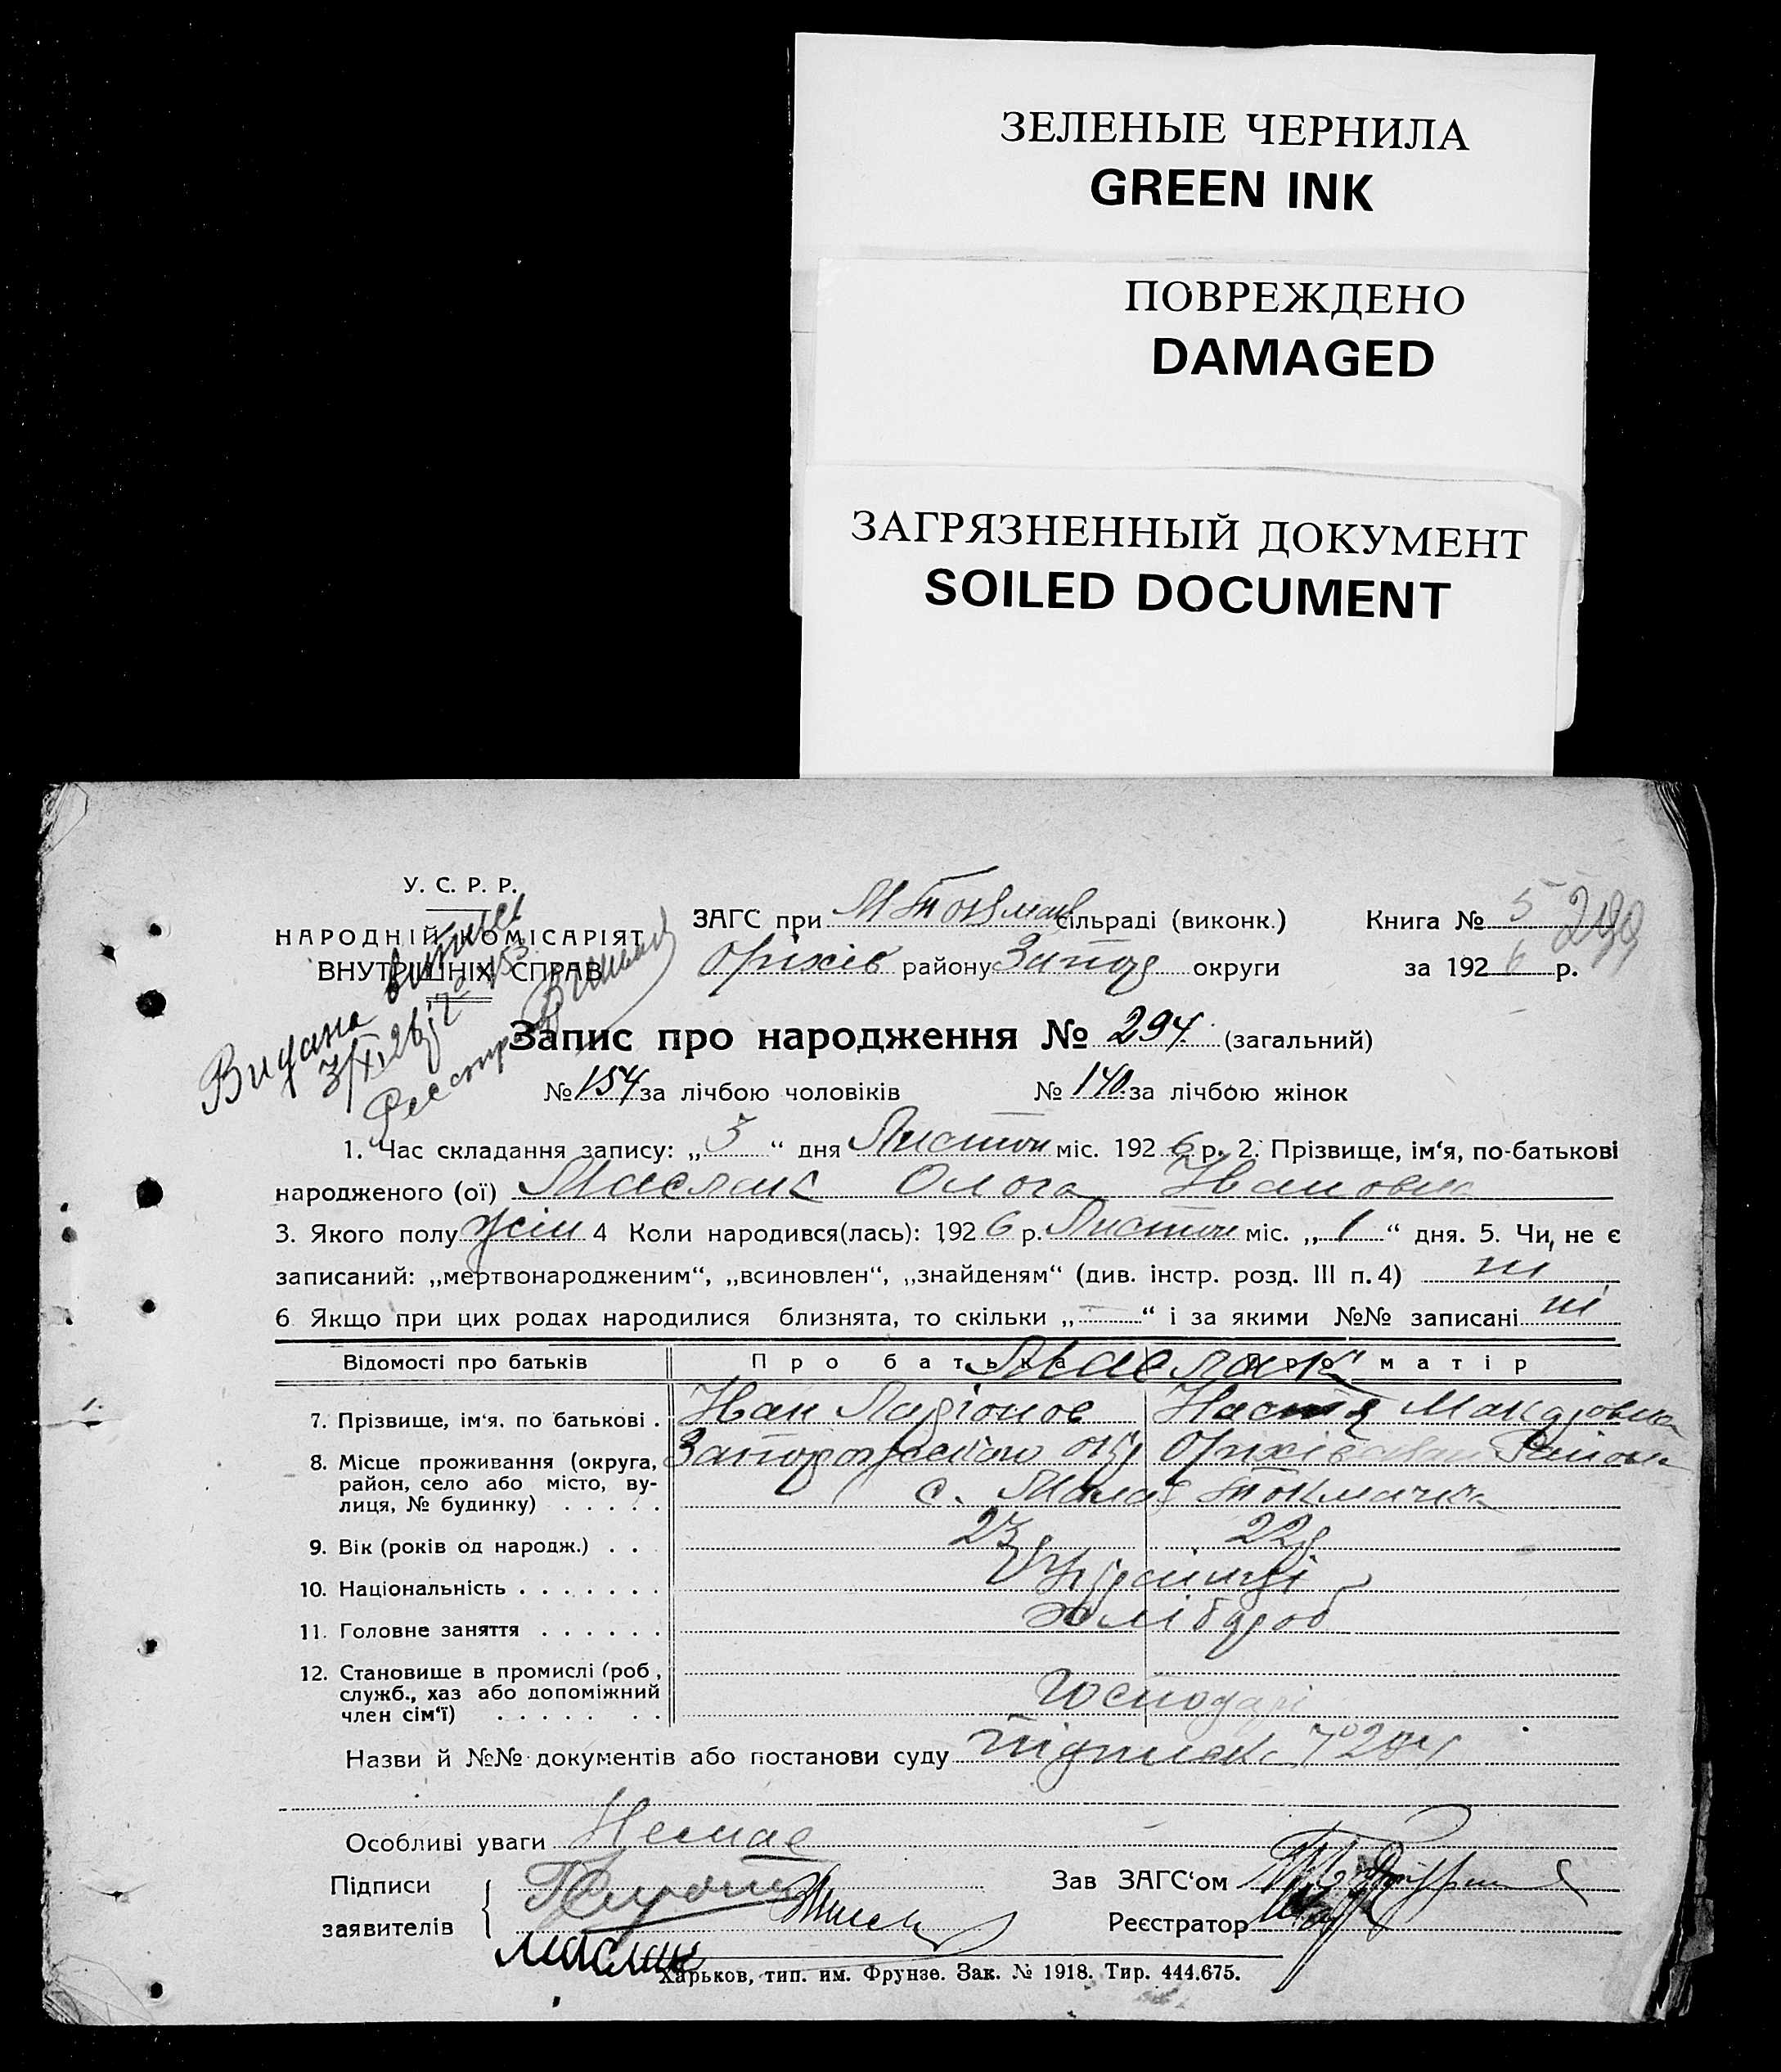 ЗЕЛЕНЫЕ ЧЕРНИЛА
GREEN INK
ПОВРЕЖДЕНО
DAMAGED
ЗАГРЯЗНЕННЫЙ ДОКУМЕНТ
SOILED DOCUMENT
У. С. Р. Р.
НАРОДНІЙ КОМІСАРІЯТ
ВНУТРІШНІХ СПРАВ
Видана
ЗАГС при М Токмац сільраді (виконк.) Книга № 5 299
Оріхів району Запор округи за 1926 р.
Запис про народження № 294. (загальний)
№ 154 за лічбою чоловіків № 140. за лічбою жінок
1. Час складання запису: „5“ дня Листоп міс. 1926 р. 2. Прізвище, ім‘я, по-батькові
народженого (ої) Маслак Ольга Ивановна
3. Якого полу жін 4 Коли народився(лась): 1926 р. Листоп міс. „1“ дня. 5. Чи не є
записаний: „мертвонародженим“, „всиновлен“, „знайденям“ (див. інстр. розд. III п. 4) ні
6 Якщо при цих родах народилися близнята, то скільки „—“ і за якими №№ записані ні
Відомості про батьків Про батька Про матір
Маслак
7. Прізвище, ім‘я. по батькові . Иван Ларіонов Настя Макаровна
8. Місце проживання (округа, район, село або місто, вулиця, № будинку) . . . . . Запорожской окр Оріхівськаи Района
с. Малая Токмачка
9. Вік (років од народж.) . . 23 22
10. Національність . . . . . . . Українці
11. Головне заняття . . . . . . хлібороб
12. Становище в промислі (роб, служб., хаз або допоміжний член сім‘ї) . . . . . . . Господарі
Назви й №№ документів або постанови суду
Особливі уваги Немае
Підписи
заявителів
Маслак
Зав ЗАГС‘ом
Реєстратор
Харьков, тип. им. Фрунзе. Зак. № 1918. Тир. 444.675.